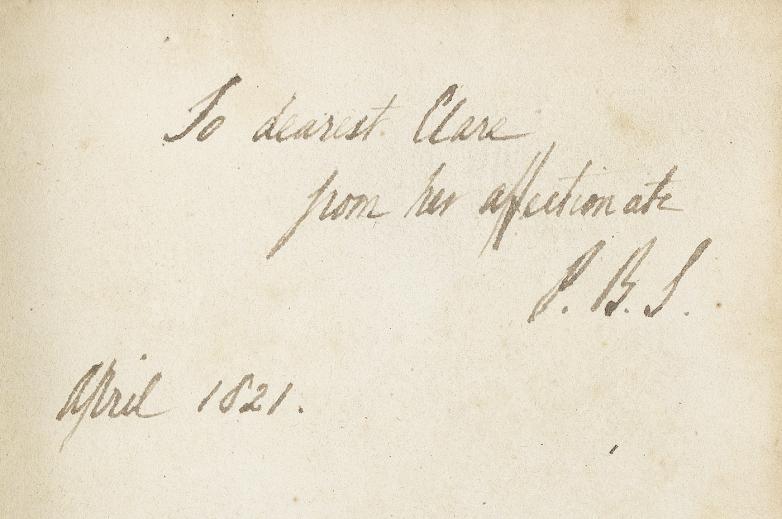 To dearest Clare
from her affectionate
P. B. S.
April 1821.